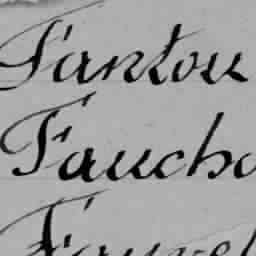 Fantou
Faucho
Fauvel